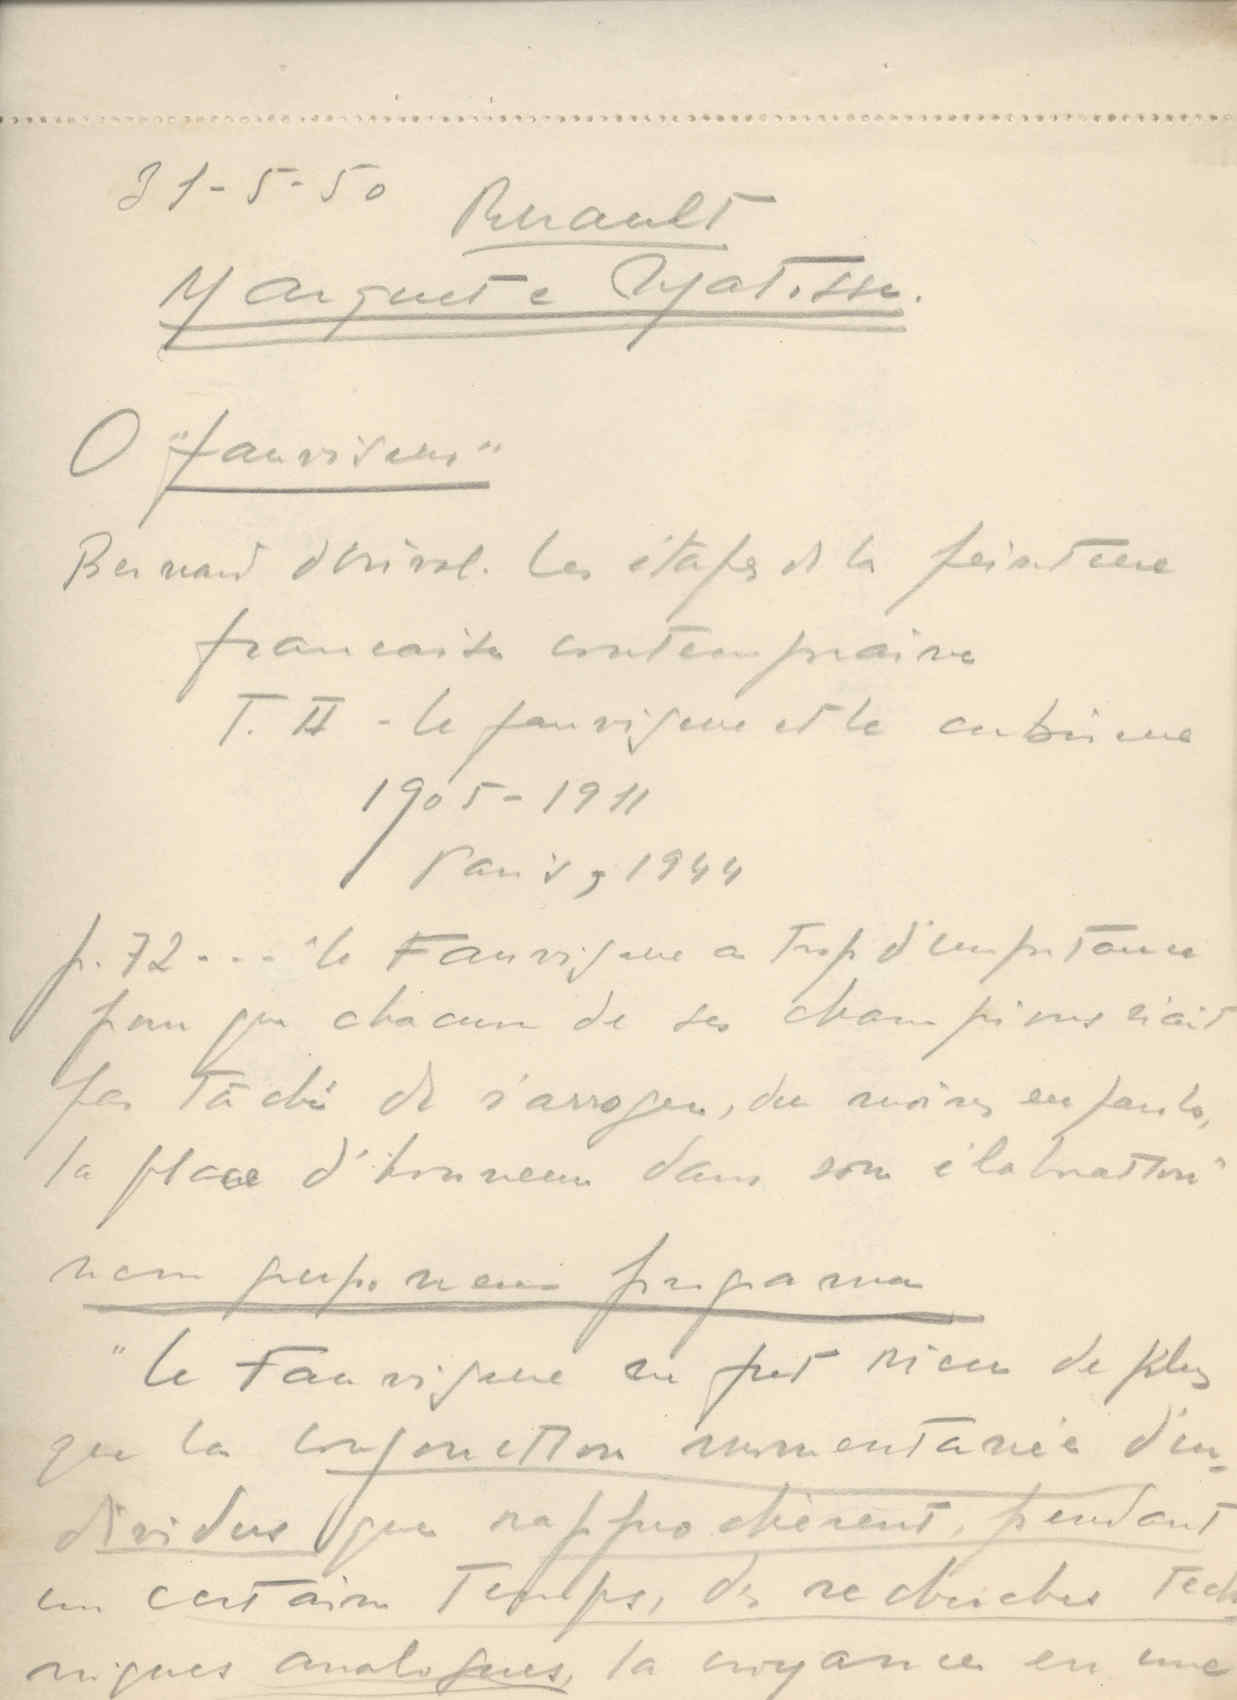 31-5-50
Rouault
Marquet e Matisse.
O "fauvisme"
Bernard dorival. Les étapes de la peinture
française contemporaine
T. II - le fauvisme et le cubisme
1905-1911
Paris, 1944
p. 72 ... "le Fauvisme a trop d'importance
pour que chacun de ses champions n'ait
pas tâché de s'arroger, du moins en parole,
la place d'honneur dans son élaboration"
nem programa
"le Fauvisme ne fut rien de plus
que la conjonction momentanée d'in-
dividus que rapprochèrent, pendant
un certain temps, des recherches tech
niques analogues, la croyance en une